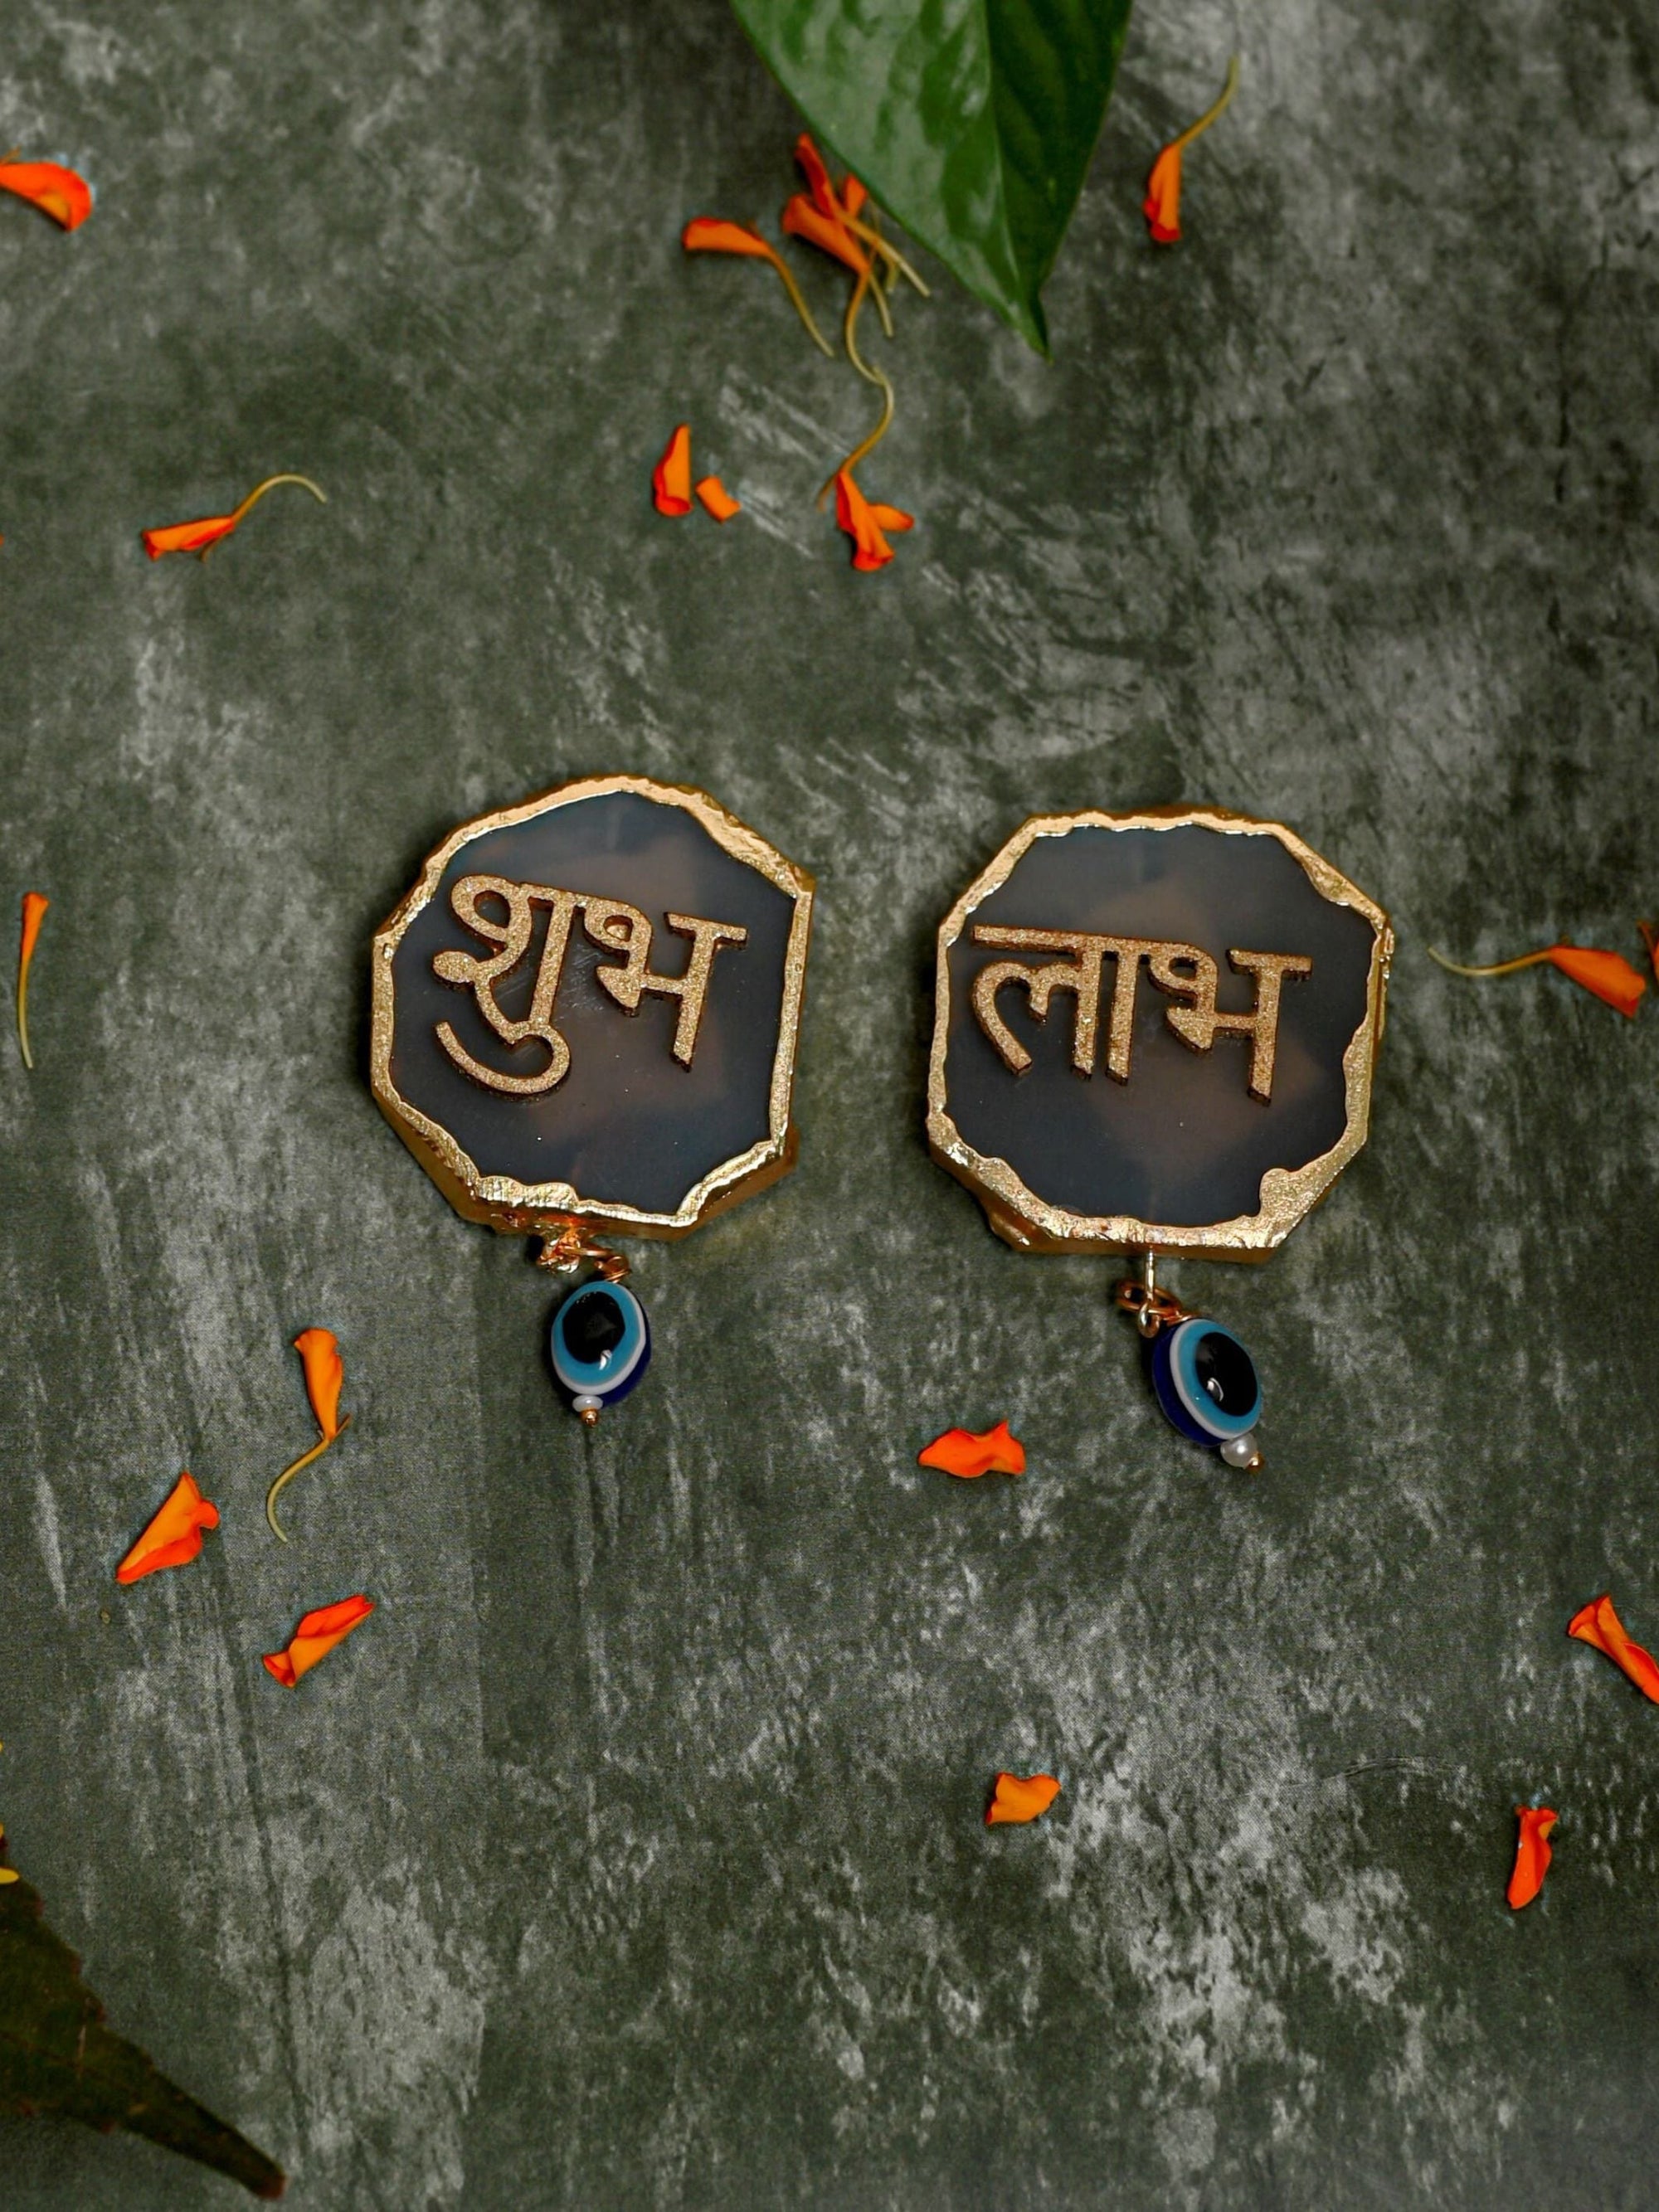 शुभ
लाभ